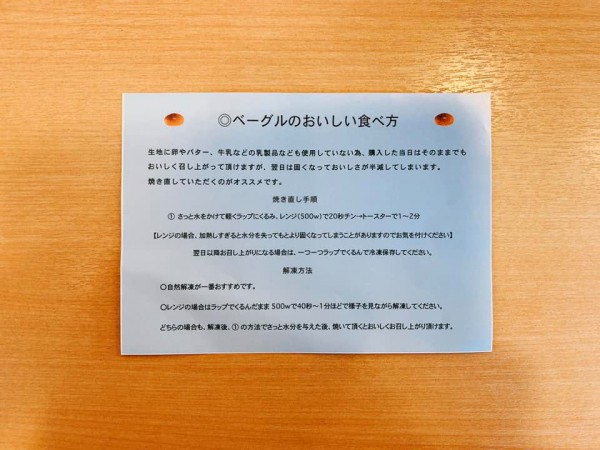 ◎ベーグルのおいしい食べ方
生地に卵やバター、牛乳などの乳製品なども使用していない為、購入した当日はそのままでも
おいしく召し上がって頂けますが、翌日は固くなっておいしさが半減してしまいます。
焼き直していただくのがオススメです。
焼き直し手順
① さっと水をかけて軽くラップにくるみ、レンジ(500w)で20秒チン→トースターで1～2分
【レンジの場合、加熱しすぎると水分を失ってもとより固くなってしまうことがありますのでお気を付けください】
翌日以降お召し上がりになる場合は、一つ一つラップでくるんで冷凍保存してください。
解凍方法
○自然解凍が一番おすすめです。
○レンジの場合はラップでくるんだまま 500wで40秒～1分ほどで様子を見ながら解凍してください。
どちらの場合も、解凍後、① の方法でさっと水分を与えた後、焼いて頂くとおいしくお召し上がり頂けます。